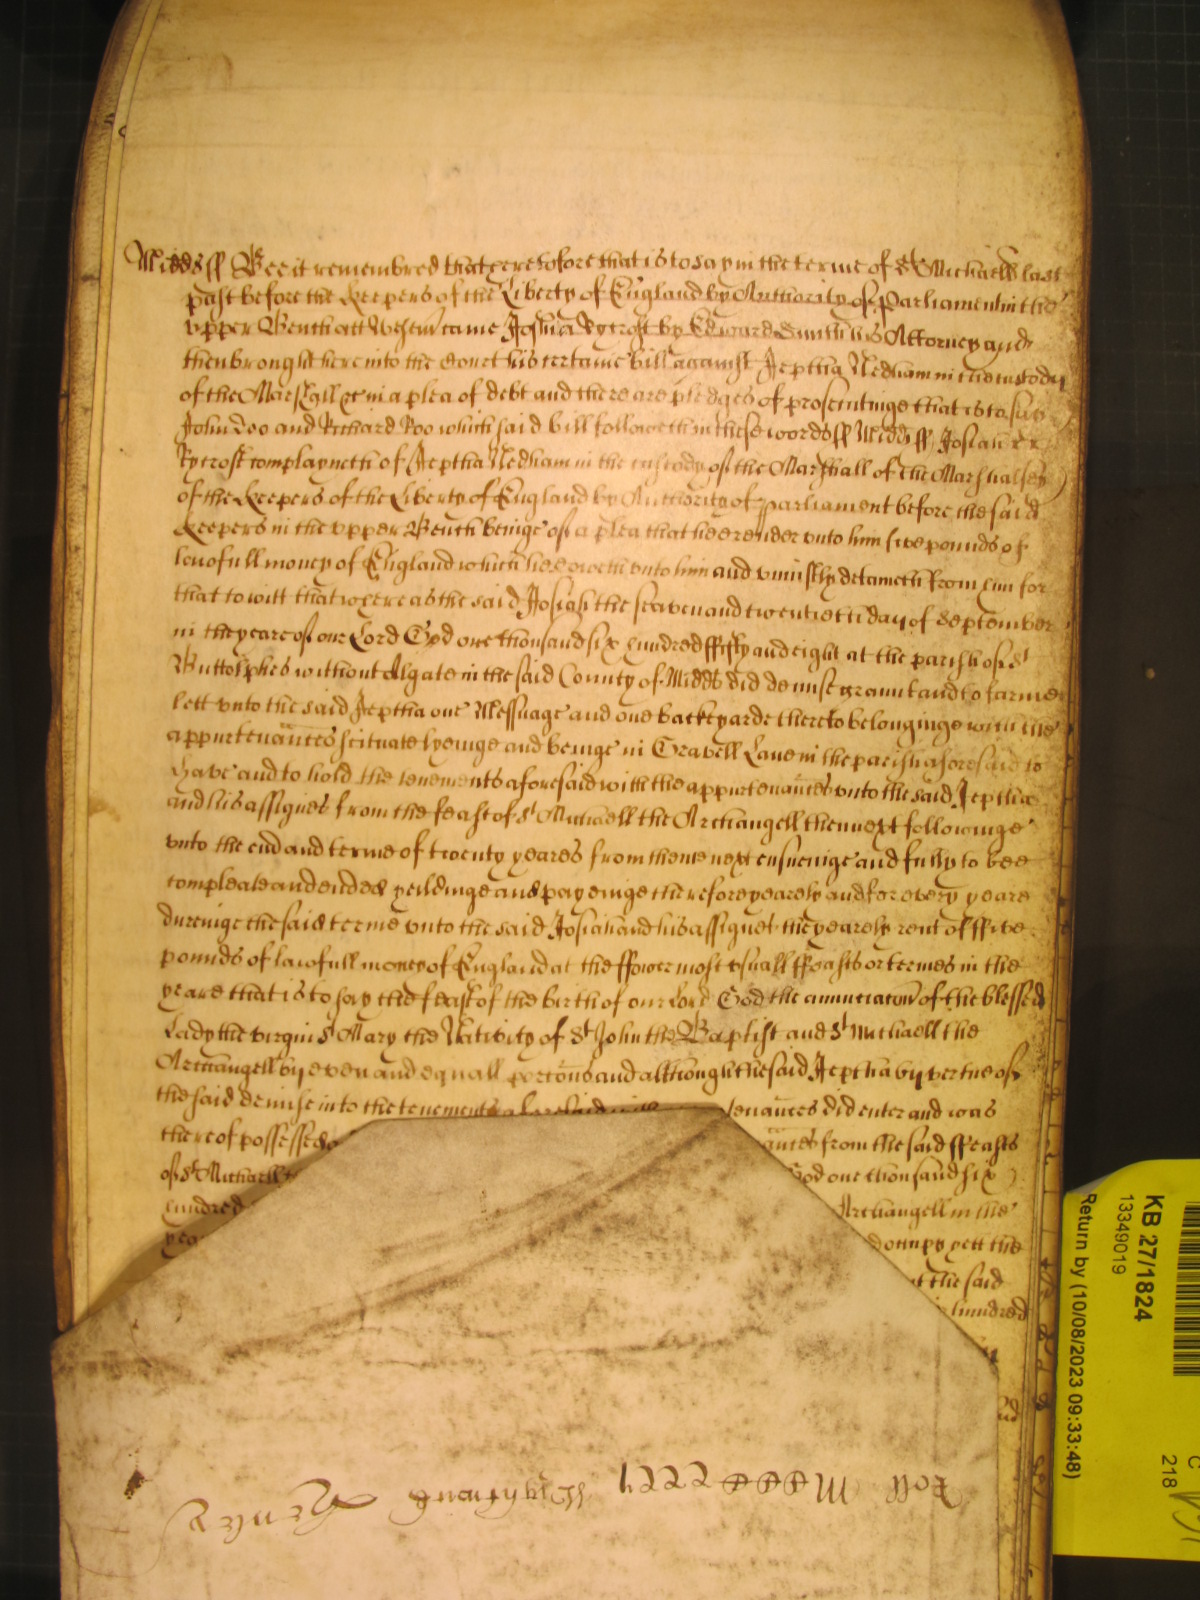 Midds ss Bee it remembred that heretofore that is to say in the terme of St Michaell last
past before the Keepers of the Liberty of England by Authority of Parliament in the
upper Bench att Westmr came Josiah Rycroft by Edward Smith his Attorney and
then brought here into the Court his certaine bill against Jeptha Nedham in the custody
of the Marshall &c in a plea of debt and there are pledges of prosecutinge that is to say
John Doo and Richard Roo which said bill followeth in these words ss Midds ss Josiah
Rycroft complayneth of Jeptha Nedham in the custody of the Marshall of the Marshalsey
of the Keepers of the Liberty of England by Authority of Parliament before the said
Keepers in the upper Bench beinge of a plea that hee render unto him five pounds of
lawfull money of England which hee oweth unto him and uniustly detaineth from him for
that to witt that whereas the said Josiah the seaven and twentieth day of September
in the yeare of our Lord God one thousand six hundred fifty and eight at the parish of St
Buttolphes without Algate in the said County of Midds did demise graunt and to farme
lett unto the said Jeptha one Messuage and one backyarde thereto belonginge with the
appurtenances scituate lyeinge and beinge in Gravell Lane in the parish aforesaid to
have and to hold the tenements aforesaid with the appurtenances unto the said Jeptha
and his assignes from the feast of St Michaell the Archangell then next followinge
unto the end and terme of twenty yeares from thence next ensueinge and fully to bee
compleate and ended yeildinge and payeinge therefore yearely and for every yeare
dureinge the said terme unto the said Josiah and his assignes the yearely rent of ffive
pounds of lawfull money of England at the ffower most usuall ffeasts or termes in the
yeare that is to say the feast of the birth of our Lord God the annunciacon of the blessed
Lady the virgin St Mary the Nativity of St John the Baptist and St Michaell the
Archangell by even and equall porcons and although the said Jeptha by vertue of
the said demise into the tenements aforesaid with tenances did enter and was
thereof possessed ances from the said ffeasts
of St Michaell God one thousand six
hundred Archangell in the
yea occupy yett the
at the said
hundred
Roll
KB 27/1824
13349019
Return by (10/08/2023 09:33:48)
218